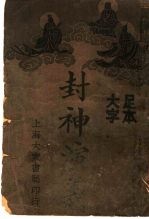 足本
大字
封神演義
上海大眾書局印行